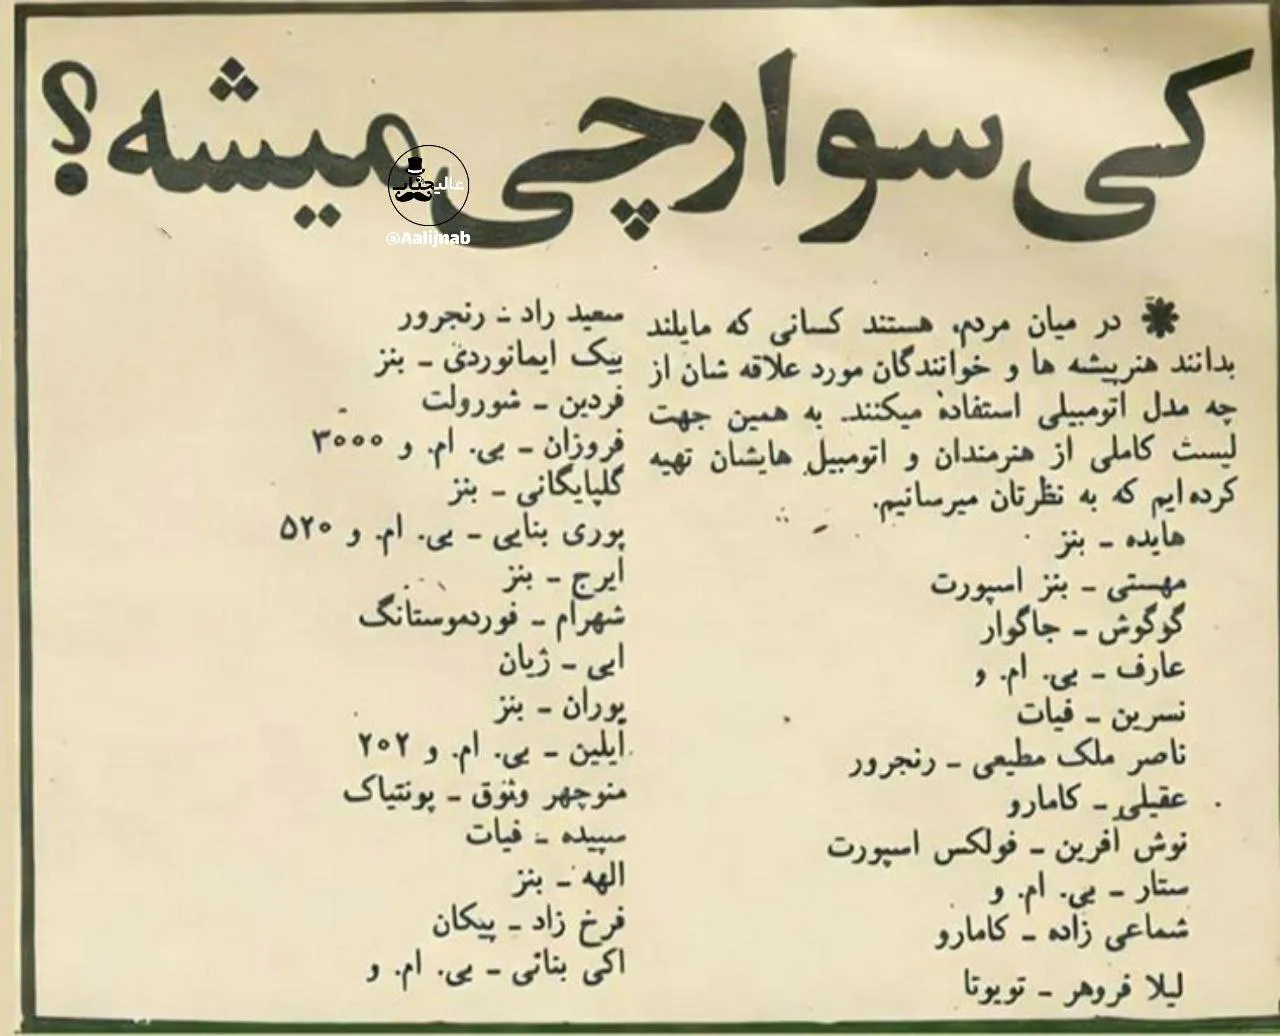 کی سوارچی میشه؟
عالیجناب
@Aalijnab
در میان مردم، هستند کسانی که مایلند
بدانند هنرپیشه ها و خوانندگان مورد علاقه شان از
چه مدل اتومبیلی استفاده میکنند. به همین جهت
لیست کاملی از هنرمندان و اتومبیل هایشان تهیه
کرده ایم که به نظرتان میرسانیم.
هایده – بنز
مهستی – بنز اسپورت
گوگوش – جاگوار
عارف – بی. ام. و
نسرین – فیات
ناصر ملک مطیعی – رنجرور
عقیلی – کامارو
نوش آفرین – فولکس اسپورت
ستار – بی. ام. و
شماعی زاده – کامارو
لیلا فروهر – تویوتا
سعید راد – رنجرور
بیک ایمانوردی – بنز
فردین – شورولت
فروزان – بی. ام. و ۳۰۰۰
گلپایگانی – بنز
پوری بنایی – بی. ام. و ۵۲۰
ایرج – بنز
شهرام – فوردموستانگ
ابی – ژیان
پوران – بنز
آیلین – بی. ام. و ۲۰۲
منوچهر وثوق – پونتیاک
سپیده – فیات
الهه – بنز
فرخ زاد – پیکان
اکی بنائی – بی. ام. و